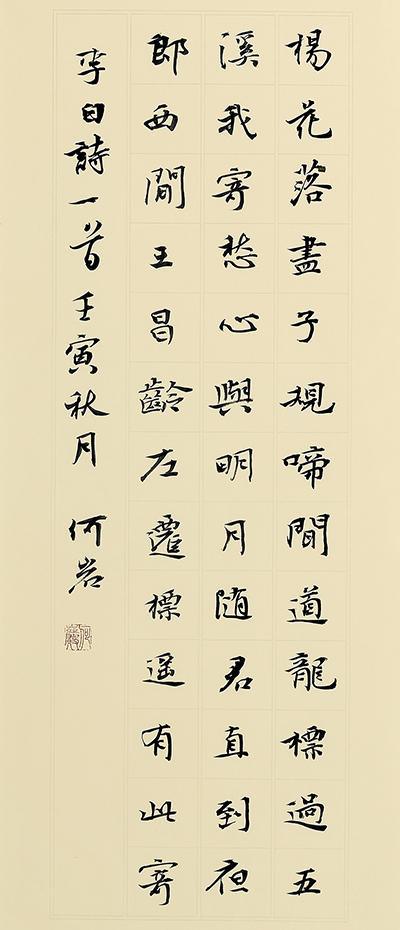 楊花落盡子規啼聞道龍標過五
溪我寄愁心與明月随君直到夜
郎西聞王昌齡左遷標遥有此寄
李白詩一首壬寅秋月 何岩